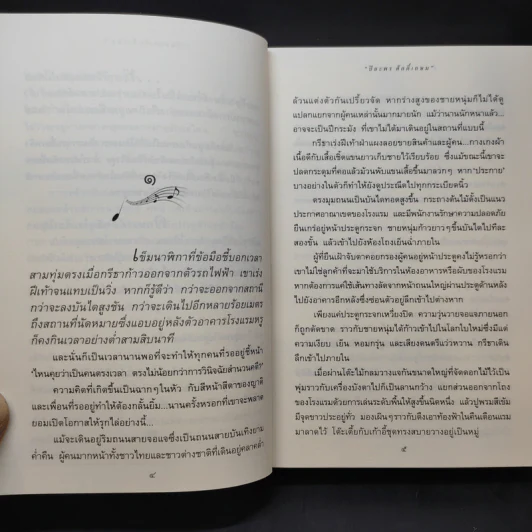 ๑
เข็มนาฬิกาที่ข้อมือชี้บอกเวลา
สามทุ่มตรงเมื่อกรีชาก้าวออกจากตัวรถไฟฟ้า เขาเร่ง
ฝีเท้าจนแทบเป็นวิ่ง หากก็รู้ดีว่า กว่าจะออกจากสถานี
กว่าจะลงบันไดสูงชัน กว่าจะเดินไปอีกหลายร้อยเมตร
ถึงสถานที่นัดหมายซึ่งแอบอยู่หลังตัวอาคารโรงแรมหรู
ก็คงกินเวลาอย่างต่ำสามสิบนาที
และนั่นก็เป็นเวลานานพอที่จะทำให้ทุกคนที่รออยู่ชี้หน้า
'ไหนคุยว่าเป็นคนตรงเวลา ตรงไม่ตรงไม่รู้การวินิจฉัยสำนวนคดี?'
ความคิดที่เกิดขึ้นเป็นฉากๆ ในหัว กับสีหน้าสีตาของญาติ
และเพื่อนที่รออยู่ทำให้ต้องกลั้นยิ้ม...นานครั้งหรอกที่เขาจะพลาด
ยอมเปิดโอกาสให้รุกไล่อย่างนี้...
แม้จะเดินอยู่ริมถนนสายจอแจซึ่งเป็นถนนสายบันเทิงยาม
ค่ำคืน ผู้คนมากหน้าทั้งชาวไทยและชาวต่างชาติที่เดินอยู่คลาคล่ำ
๔
"ปิยะพร ศักดิ์เกษม"
ล้วนแต่งตัวกันเปรี้ยวจัด หากร่างสูงของชายหนุ่มก็ไม่ได้ดู
แปลกแยกจากผู้คนเหล่านั้นมากมายนัก แม้ว่านานนักหนาแล้ว...
อาจจะเป็นปีกระมัง ที่เขาไม่ได้มาเดินอยู่ในสถานที่แบบนี้
กรีชาเร่งฝีเท้าฝ่าแผงลอยขายสินค้าและผู้คน...กางเกงผ้า
เนื้อดีกับเสื้อเชิ้ตแขนยาวเก็บชายไว้เรียบร้อย ซึ่งแม้ขณะนี้เขาจะ
ปลดกระดุมที่คอแล้วม้วนพับแขนเสื้อขึ้นมาลวกๆ หาก'ประกาย'
บางอย่างในตัวก็ทำให้ยังดูประณีตไปทุกกระเบียดนิ้ว
ตรงมุมถนนเป็นบันไดทอดสูงขึ้น กระถางต้นไม้ตั้งเป็นแนว
ประกาศอาณาเขตของโรงแรม และมีพนักงานรักษาความปลอดภัย
ยืนเกร่อยู่หน้าประตูกระจก ชายหนุ่มก้าวยาวๆ ขึ้นบันไดไปทีละ
สองขั้น แล้วเข้าไปยังห้องโถงเย็นฉ่ำภายใน
ผู้ที่ยืนเฝ้าจับตาคอยกรองผู้คนอยู่หน้าประตูคงไม่รู้หรอกว่า
เขาไม่ใช่ลูกค้าที่จะมาใช้บริการในห้องอาหารหรือผับของโรงแรม
หากต้องการแค่ใช้เส้นทางลัดจากหน้าถนนใหญ่ผ่านประตูด้านหลัง
ไปยังอาคารอีกหลังซึ่งซ่อนตัวอยู่ลึกเข้าไปต่างหาก
เพียงแค่ประตูกระจกเหวี่ยงปิด ความวุ่นวายจอแจภายนอก
ก็ถูกตัดขาด ราวกับชายหนุ่มได้ก้าวเข้าไปในโลกใบใหม่ซึ่งมีแต่
ความเงียบ เย็น หอมกรุ่น และเสียงดนตรีแว่วหวาน กรีชาเดิน
ลึกเข้าไปภายใน
เมื่อผ่านโต๊ะไม้กลมวางแจกันขนาดใหญ่ที่จัดดอกไม้ไว้เป็น
พุ่มราวกับเครื่องบังตาไปก็เป็นลานกว้าง แยกส่วนออกจากโถง
ของโรงแรมด้วยการเล่นระดับพื้นให้สูงขึ้นสองขั้น แล้วปูพรมสีเข้ม
มีจุดขาวประอยู่ทั่ว มองเผินๆ ราวกับดึงเอาท้องฟ้าในคืนเดือนแรม
มาลาดไว้ โต๊ะเตี้ยกับเก้าอี้ชุดทรงสบายวางอยู่เป็นหมู่
๕